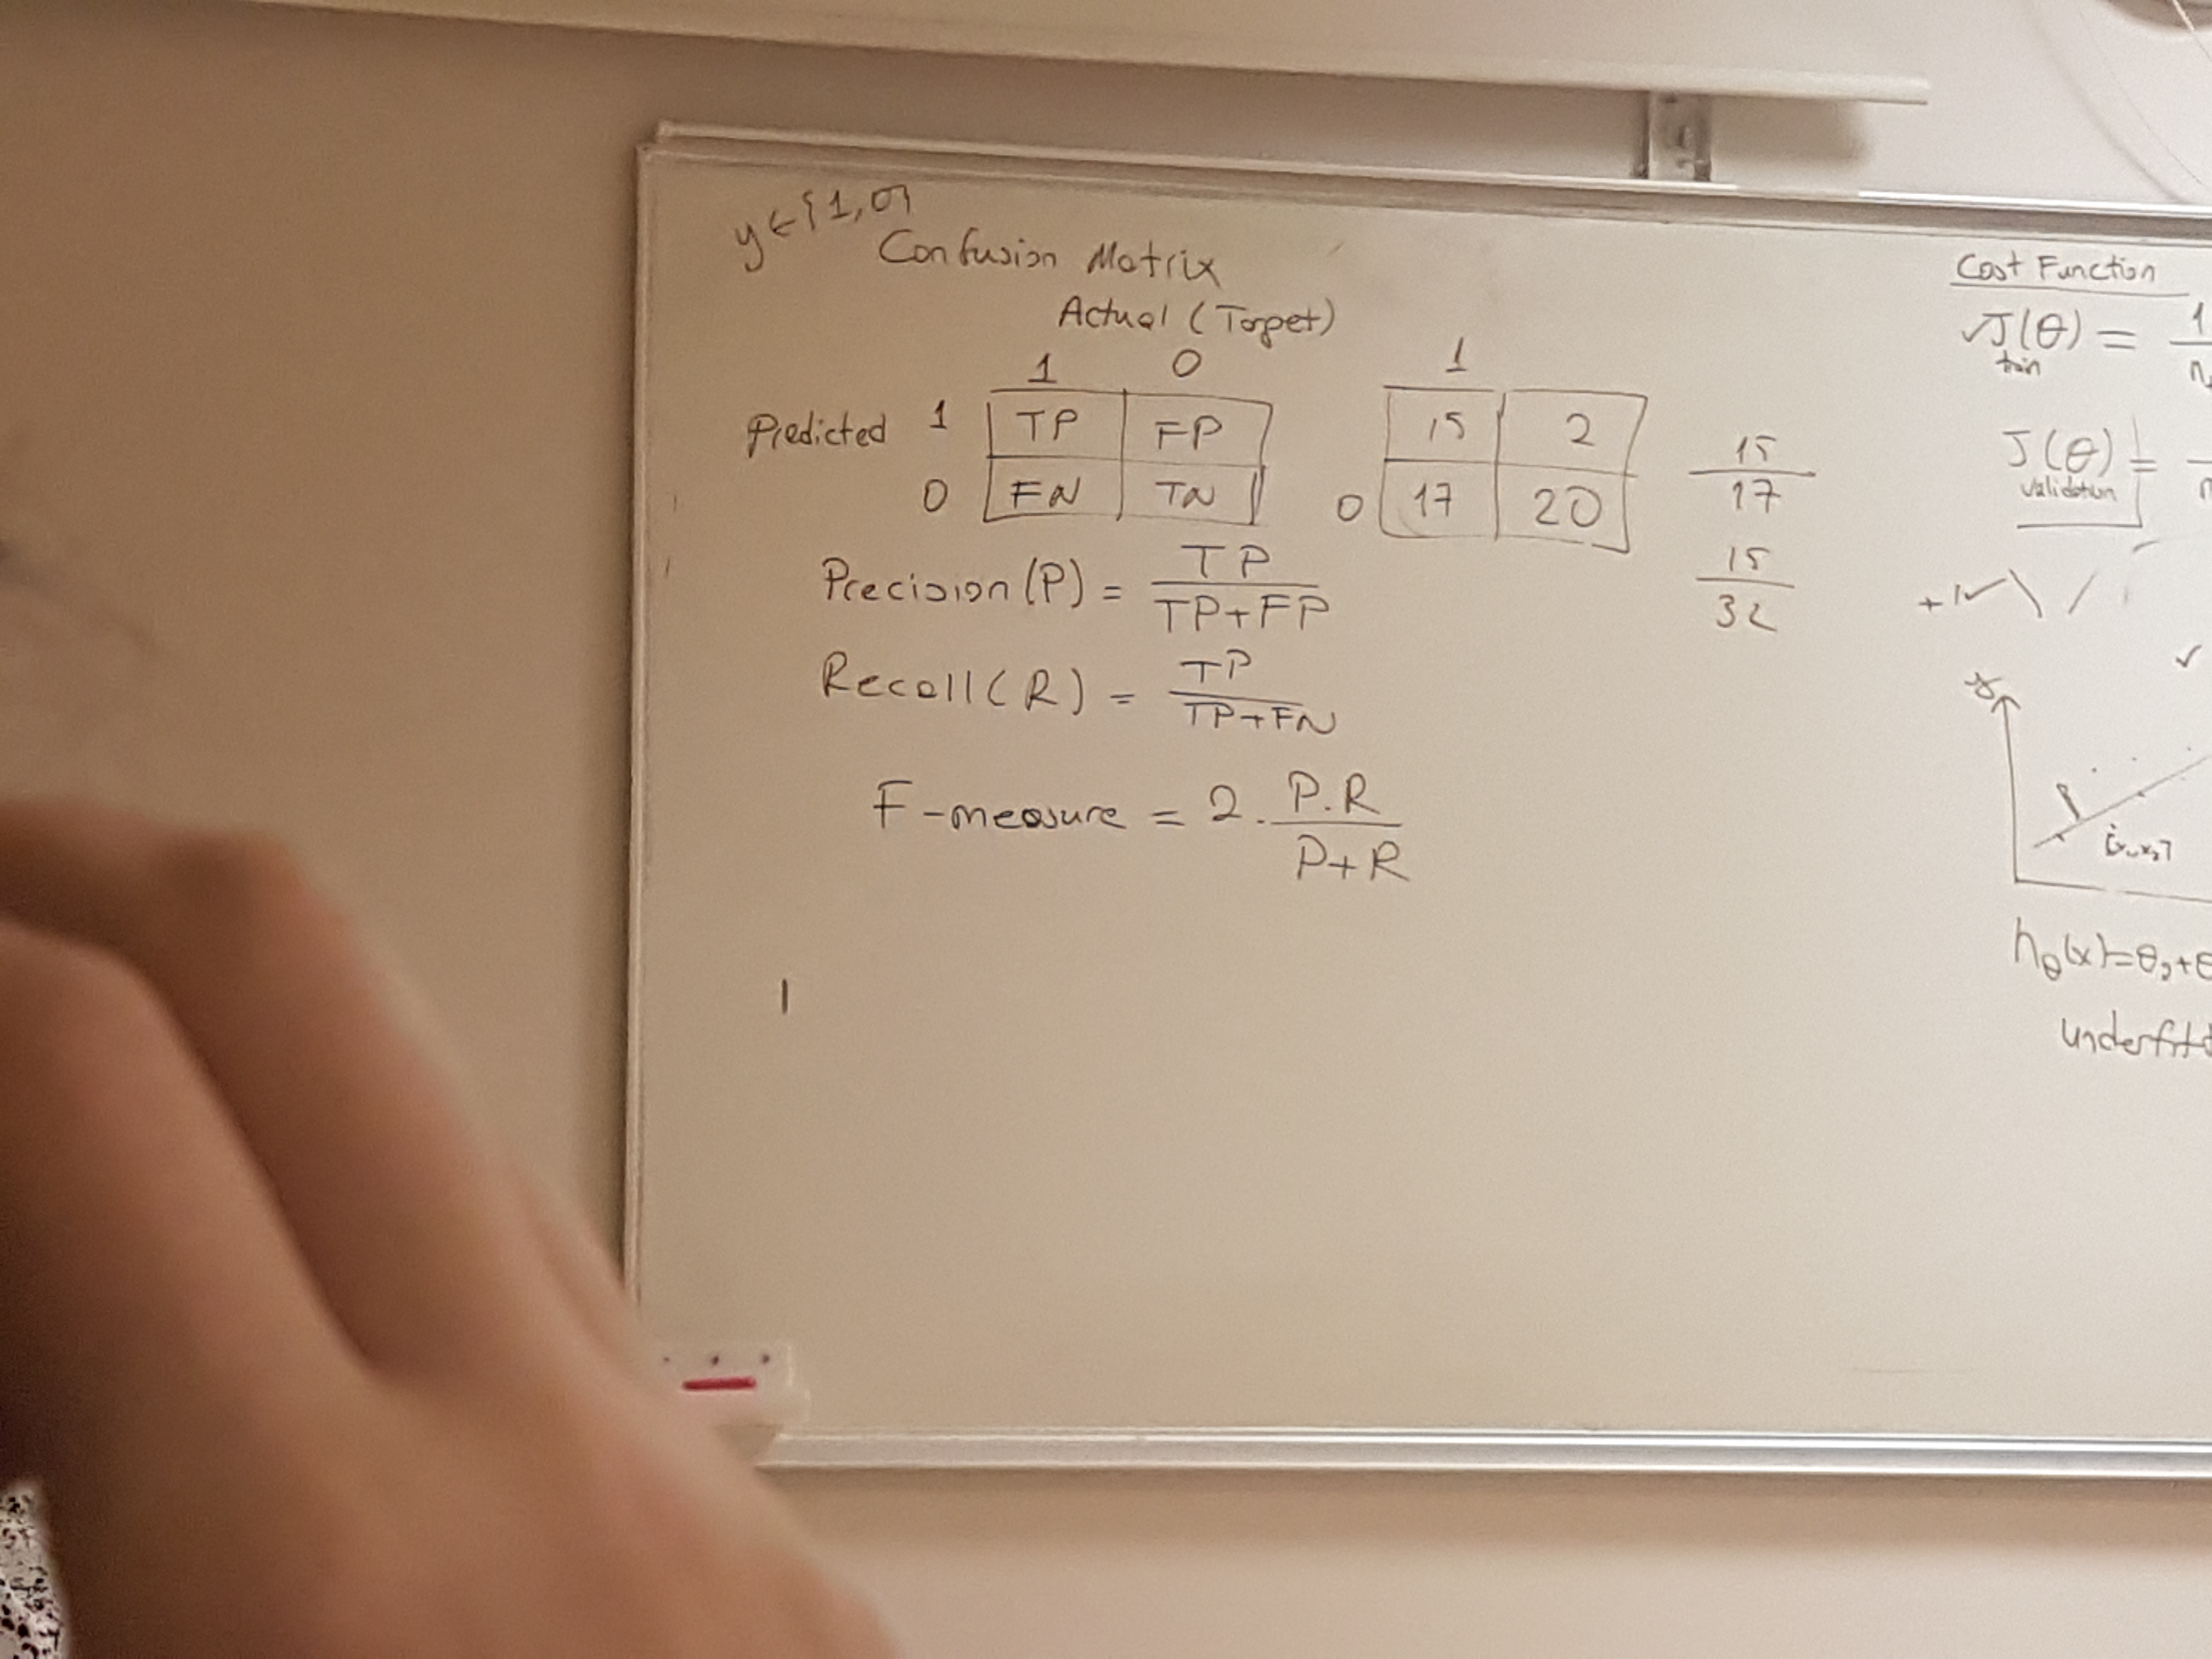 y ∈ {1,0}
Confusion Matrix
Actual (Target)
1 0
Predicted 1 TP FP
0 FN TN
1
15 2
0 17 20
15/17
15/32
Precision (P) = TP/(TP+FP)
Recall (R) = TP/(TP+FN)
F-measure = 2 . P.R/(P+R)
Cost Function
J(θ) = 1
train
J(θ) =
validation
hθ(x)=θ₀+θ
underfit